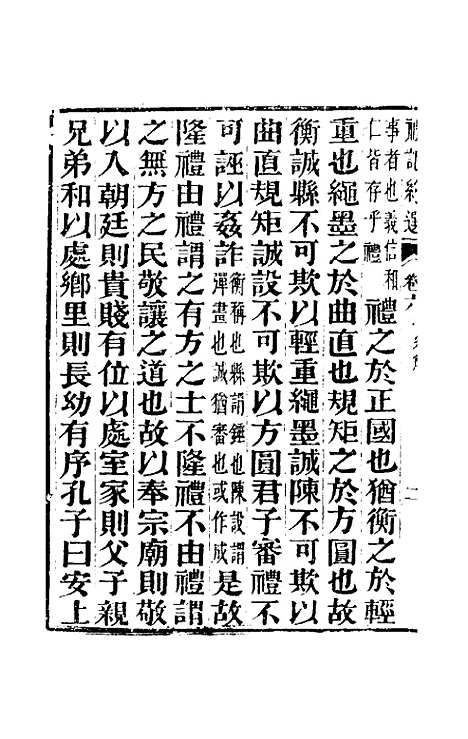 事者也義信和仁皆存乎禮 禮之於正國也猶衡之於輕
重也繩墨之於曲直也規矩之於方圓也故
衡誠縣不可欺以輕重繩墨誠陳不可欺以
曲直規矩誠設不可欺以方圓君子審禮不
可誣以姦詐 衡稱也縣謂錘也陳設謂彈畫也誠猶審也或作成 是故
隆禮由禮謂之有方之士不隆禮不由禮謂
之無方之民敬讓之道也故以奉宗廟則敬
以入朝廷則貴賤有位以處室家則父子親
兄弟和以處鄉里則長幼有序孔子曰安上